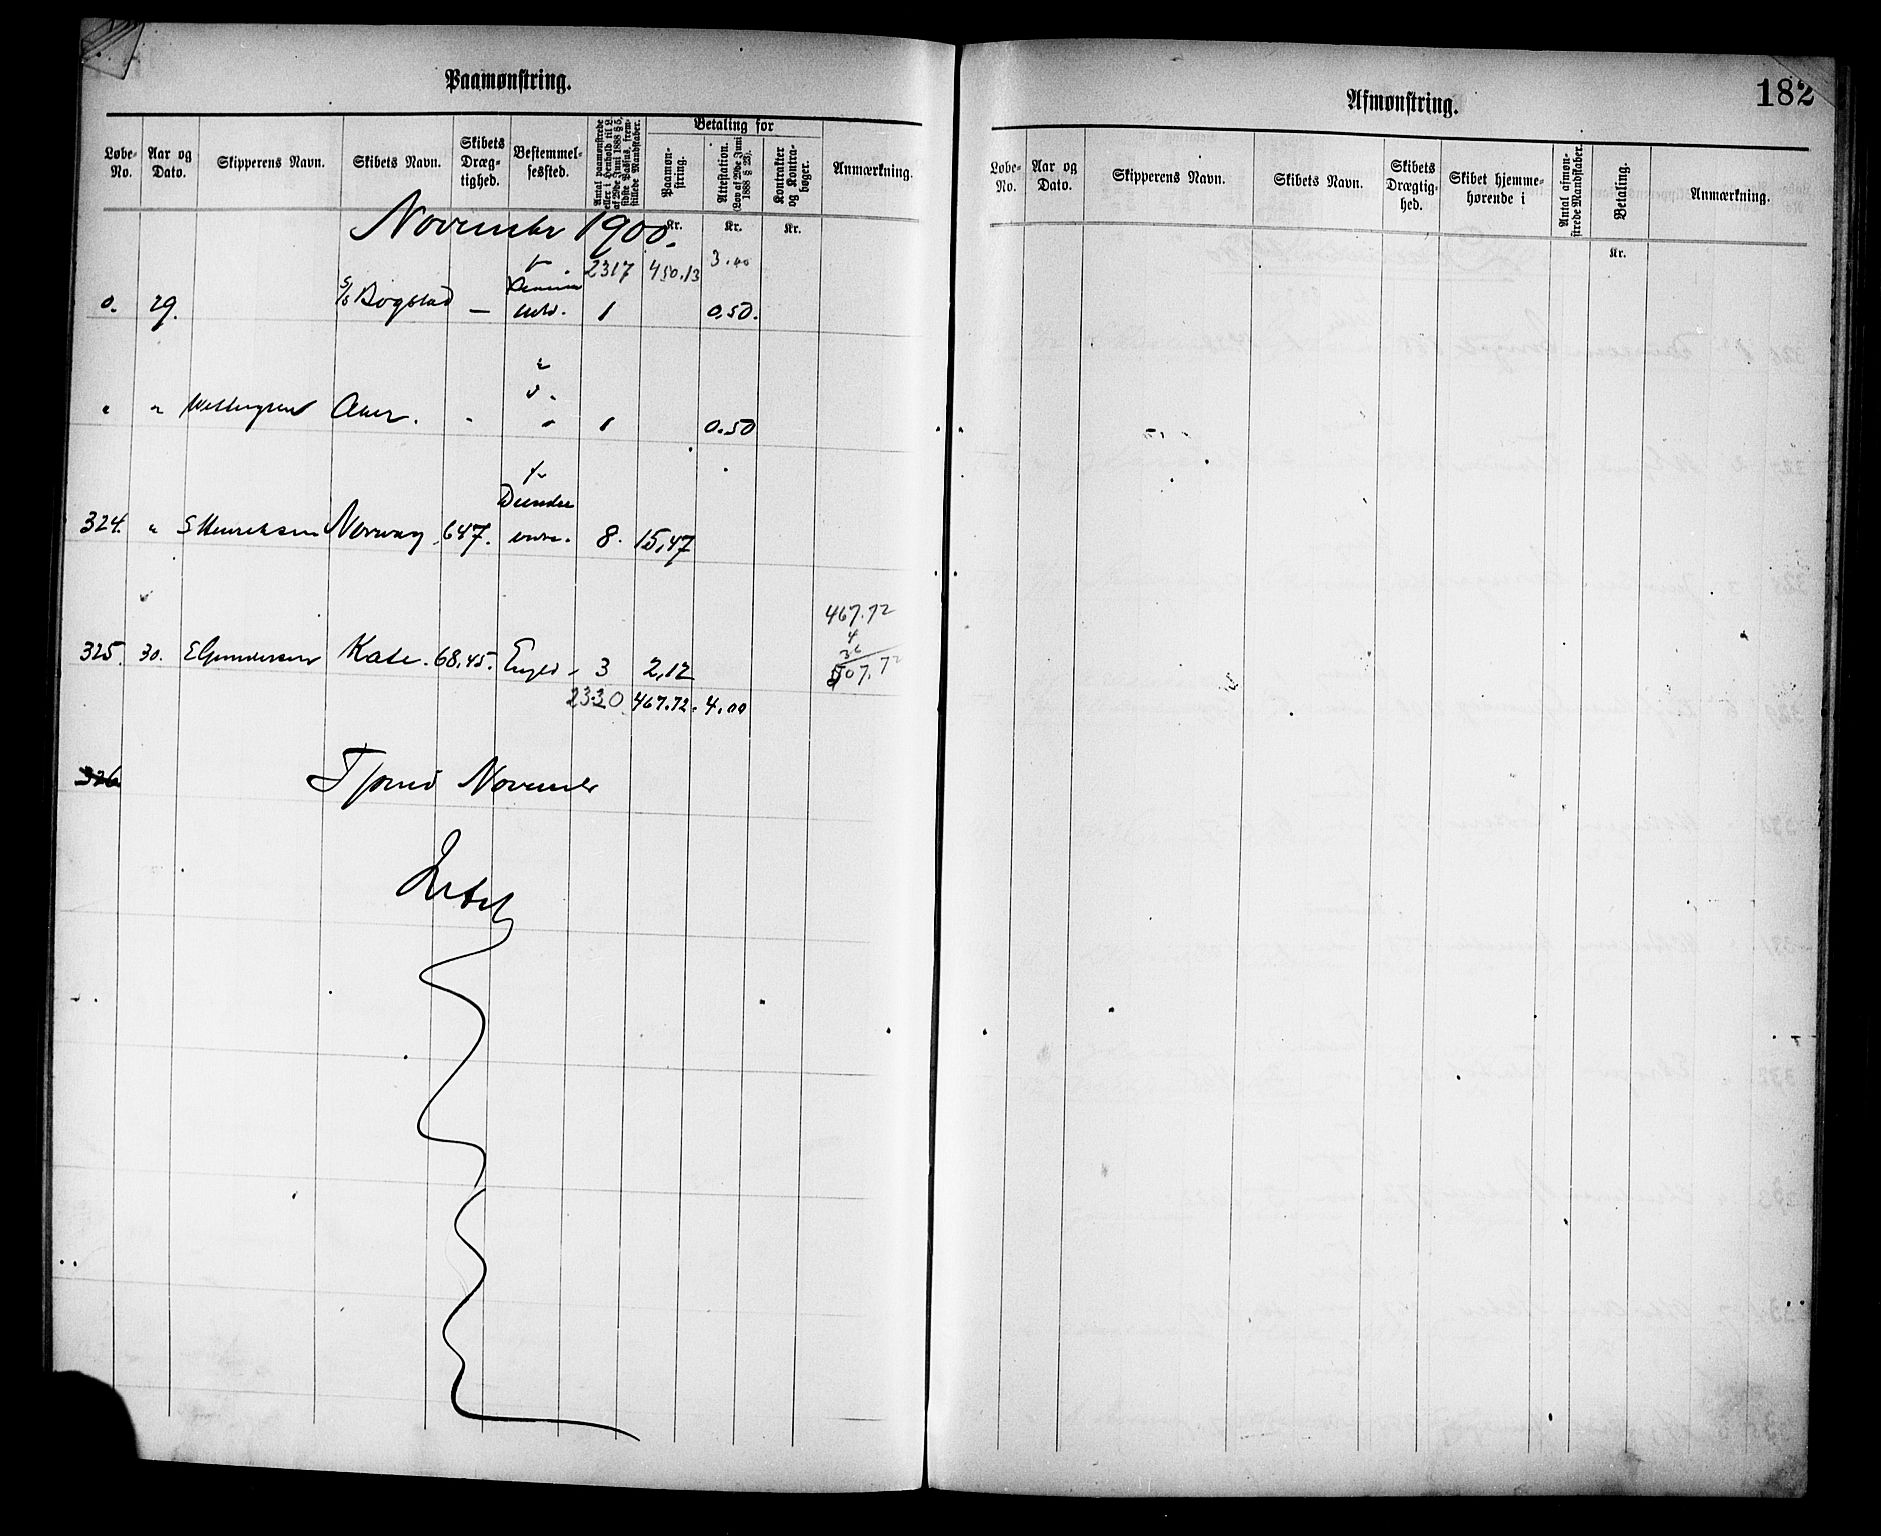 Paamønstring.
Løbe-No.
Aar og Dato.
Skipperens Navn.
Skibets Navn.
Skibets Dræg-tighed.
Bestemmel-sessted.
Antal paamønstrede eller i Henhold til L. af 29de Juni 1888 § 5, sidste Passus, frem-stillede Mandskaber.
Betaling for
Paamøn-string.
Attestation. (Lov af 29de Juni 1888 § 23).
Kontrakter og Kontra-bøger.
Anmærkning.
November 1900.
Kr. Kr. Kr.
2317 450.13 3.00
0. 29. S/S Bogstad — 1 0,50.
" " Auer. - " 1 0.50
fr
Dundee
324. " S Henriksen Norway 647. 8. 15,47
467.72
4
36
507.72
325. 30. E Gundersen Kate. 68,45. Engld - 3 2,12
2330 467.72. 4.00
326
Tjømø November
Afmønstring.
182
Løbe-No.
Aar og Dato.
Skipperens Navn.
Skibets Navn.
Skibets Drægtig-hed.
Skibet hjemme-hørende i
Antal afmøn-strede Mandskaber.
Betaling.
Anmærkning.
Kr.